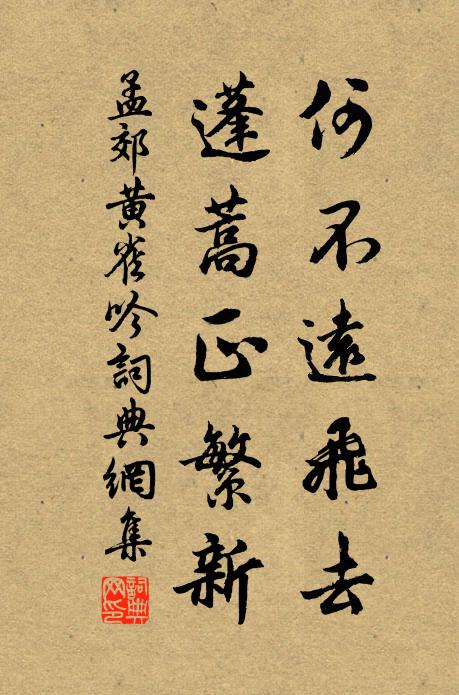 何不遠飛去
蓬蒿正繁新
孟郊黃雀吟詞典網集
詞典网印